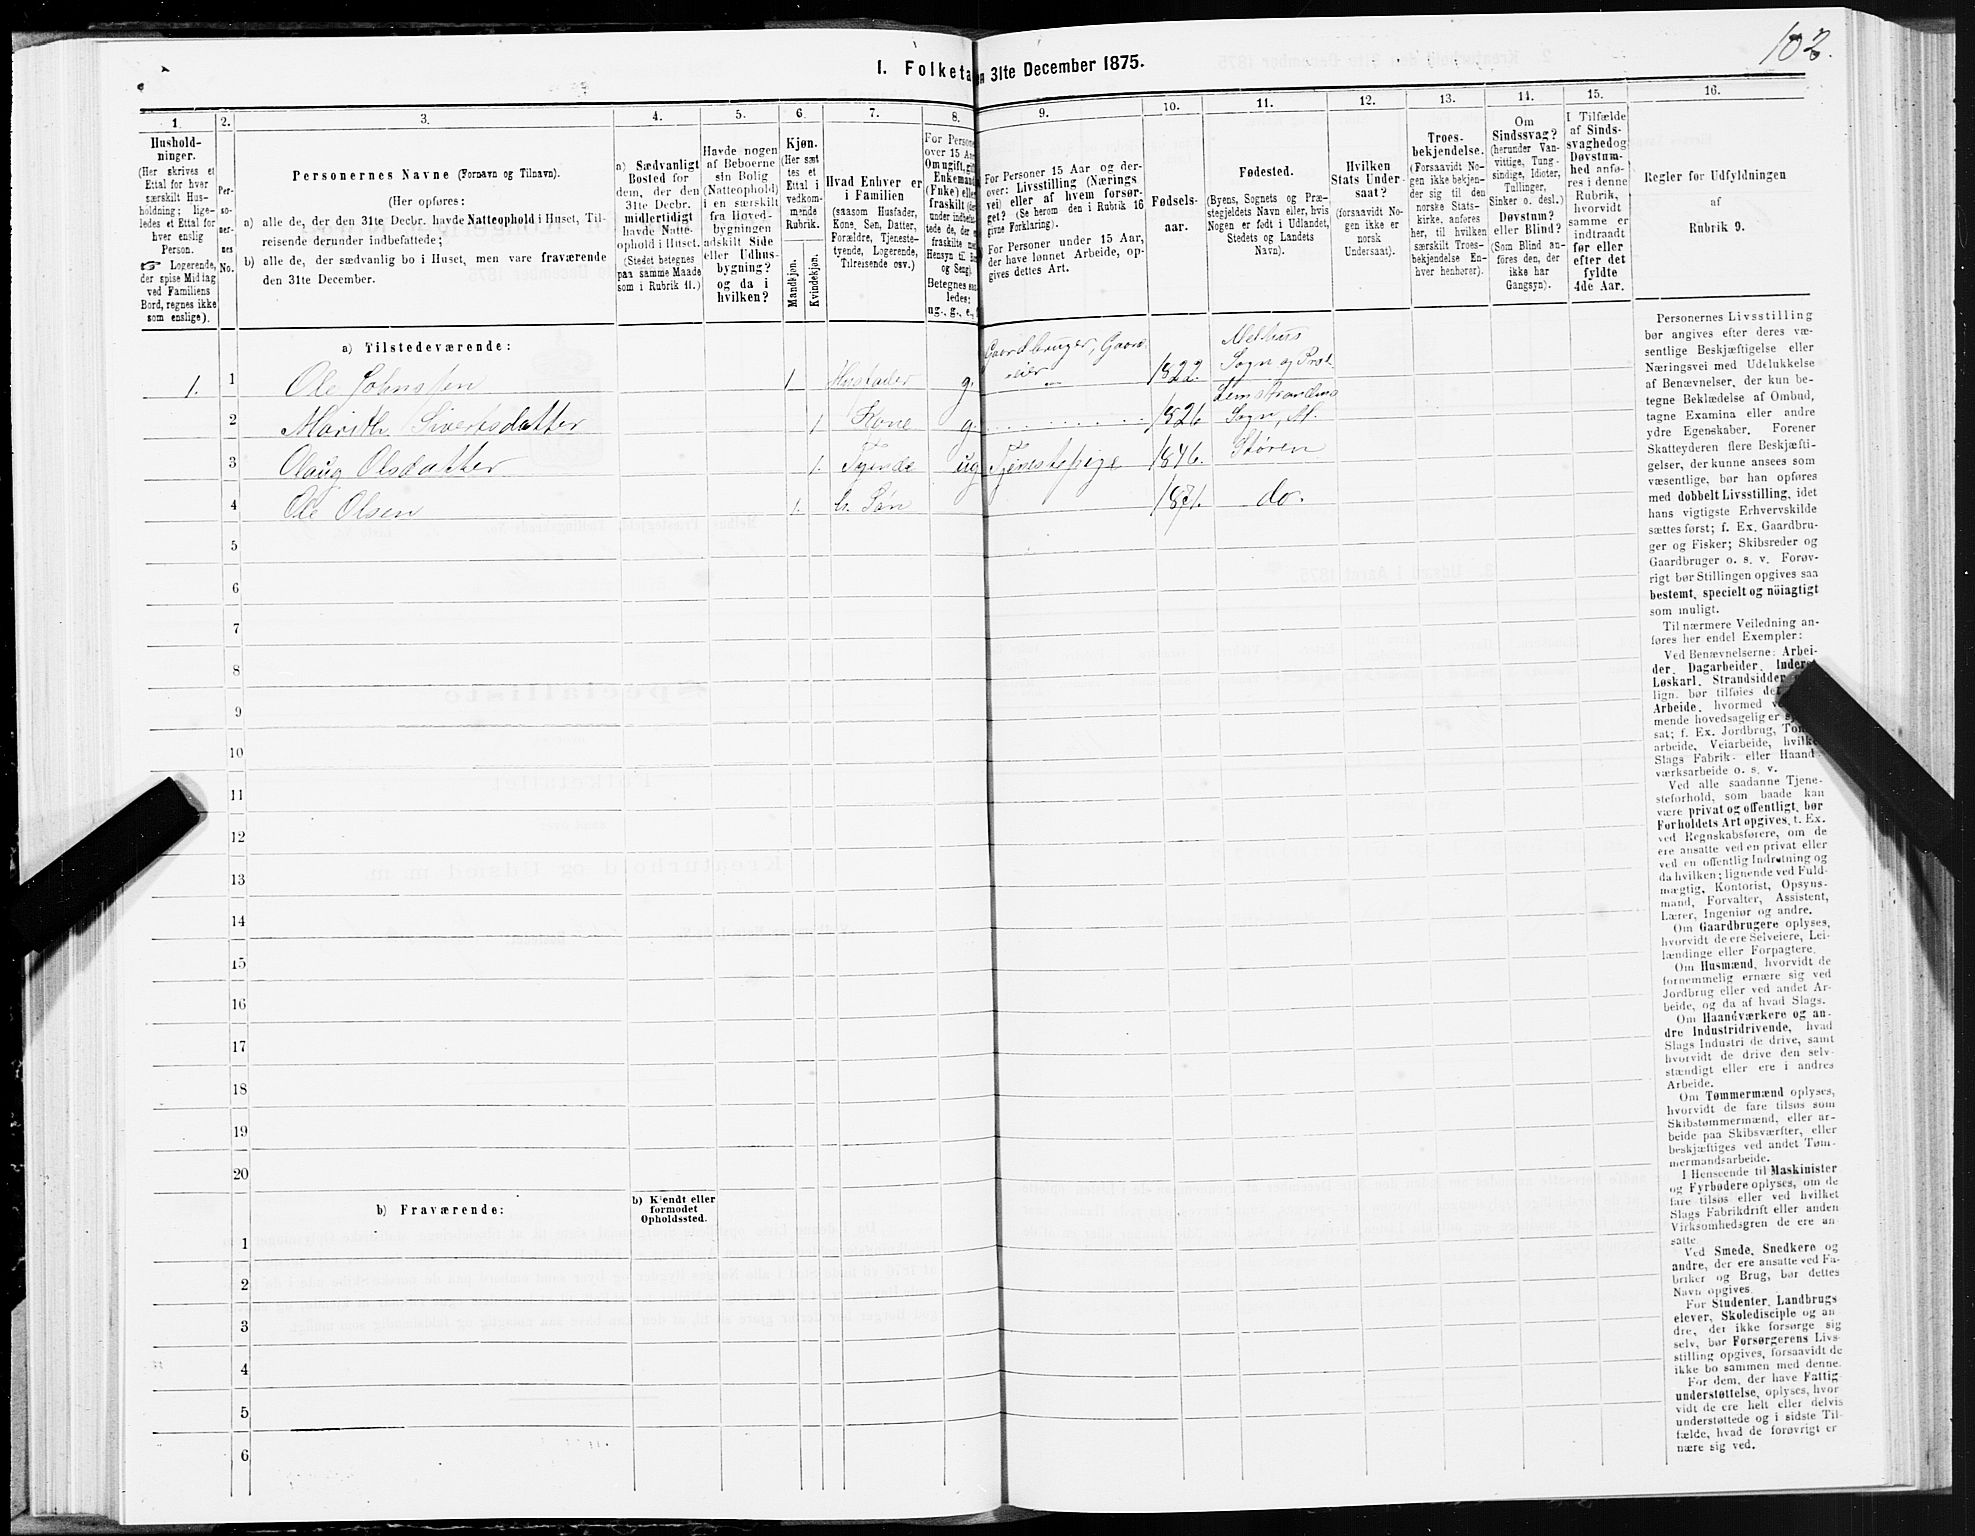 102.
I. Folketa
n 31te December 1875.
1. 2. 3. 4. 5. 6. 7. 8. 9. 10. 11. 12. 13. 14. 15. 16.
Hushold-
ninger.
(Her skrives et
Ettal for hver
særskilt Hus-
holdning; lige-
ledes et Ettal for
hver enslig
Person.
☞ Logerende,
der spise Middag
ved Familiens
Bord, regnes ikke
som enslige).
Per-
so-
ner-
nes
No.
Personernes Navne (Fornavn og Tilnavn).
(Her opføres:
a) alle de, der den 31te Decbr. havde Natteophold i Huset, Til-
reisende derunder indbefattede;
b) alle de, der sædvanlig bo i Huset, men vare fraværende
den 31te December.
a) Sædvanligt
Bosted for
dem, der den
31te Decbr.
midlertidigt
havde Natte-
ophold i Huset.
(Stedet betegnes
paa samme Maade
som i Rubrik 11.)
Havde nogen
af Beboerne
sin Bolig
(Natteophold)
i en særskilt
fra Hoved-
bygningen
adskilt Side
eller Udhus-
bygning?
og da i
hvilken?
Kjøn.
(Her sæt-
tes et
Ettal i
vedkom-
mende
Rubrik.
Mandkjøn.
Kvindekjøn.
Hvad Enhver er
i Familien
(saasom Husfader,
Kone, Søn, Datter,
Forældre, Tjeneste-
tyende, Logerende,
Tilreisende osv.)
For Persone
over 15 Aa
Om ugift, gift
Enkemand
(Fnke) elle
fraskilt (de
under indbefat-
tede de, de
fraskilte me
Hensyn til Bo
og Seng).
Betegnes saa-
ledes:
ug., g., e.,
For Personer 15 Aar og der-
over: Livsstilling (Nærings
vei) eller af hvem forsør-
get? (Se herom den i Rubrik 16
givne Forklaring).
For Personer under 15 Aar,
der have lønnet Arbeide, op-
gives dettes Art.
Fødsels-
aar.
Fødested.
(Byens, Sognets og Præ-
stegjeldets Navn eller, hvis
Nogen er født i Udlandet,
Stedets og Landets
Navn).
Hvilken
Stats Under-
saat?
(forsaavidt No-
gen ikke er
norsk
Undersaat).
Troes-
bekjendelse.
(Forsaavidt No-
gen ikke bekjen-
der sig til den
norske Stats-
kirke, anføres
her, til hvilken
særskilt Troes-
bekjendelse En-
hver henhører).
Om
Sindssvag?
(herunder Van-
vittige, Tung-
sindige, Idioter,
Tullinger,
Sinker o. desl.)
Døvstum?
eller Blind?
(Som Blind an-
føres den, der
ikke har
Gangsyn).
I Tilfælde
af Sinds-
svaghed og
Døvstum-
hed anfø-
res i denne
Rubrik,
hvorvidt
samme er
indtraadt
før eller
efter det
fyldte
4de Aar.
Regler for Udfyldningen
af
Rubrik 9.
a) Tilstedeværende:
1. 1 Ole Johnssen 1 g. Gaardbruger, Gaard- eier 1822. Melhus Sogn og Præ.
2 Marith Sivertsdatter 1 Kone g. 1826 Sogn, M.
3 Olaug Olsdatter 1. Tyende ug Tjenestepige 1846. Støren
4 Ole Olsen 1. Søn 1871. do.
5
6
7
8
9
10
11
12
13
14
15
16
17
18
19
20
b) Fraværende:
b) Kjendt eller
formodet
Opholdssted.
1
2
3
4
5
6
Personernes Livsstilling
bør angives efter deres væ-
sentlige Beskjæftigelse eller
Næringsvei med Udelukkelse
af Benævnelser, der kun be-
tegne Beklædelse af Ombud,
tagne Examina eller andre
ydre Egenskaber. Forener
Skatteyderen flere Beskjæfti-
gelser, der kunne ansees som
væsentlige, bør han opføres
med dobbelt Livsstilling, idet
hans vigtigste Erhvervskilde
sættes først; f. Ex. Gaardbru-
ger og Fisker; Skibsreder og
Gaardbruger o. s. v. Forøv-
rigt bør Stillingen opgives saa
bestemt, specielt og nöiagtigt
som muligt.
Til nærmere Veiledning an-
føres her endel Exempler:
Ved Benævnelserne: Arbei-
der, Dagarbeider, Inderst
Løskarl, Strandsidder
lign. bør tilføies det
Arbeide, hvormed
mende hovedsagelig er
sat; f. Ex. Jordbrug,
arbeide, Veiarbeide, hvilke
Slags Fabrik- eller Haand-
værksarbeide o. s. v.
Ved alle saadanne Tjene-
steforhold, som baade kan
være privat og offentligt, bør
Forholdets Art opgives, t. Ex.
ved Regnskabsførere, om de
ere ansatte ved en privat eller
ved en offentlig Indretning og
da hvilken; lignende ved Fuld-
mægtig, Kontorist, Opsyns-
mand, Forvalter, Assistent,
Lærer, Ingeniør og andre.
Om Gaardbrugere oplyses,
hvorvidt de ere Selveiere, Lei-
lændinge eller Forpagtere.
Om Husmænd, hvorvidt de
fornemmelig ernære sig ved
Jordbrug eller ved andet Ar-
beide, og da af hvad Slags.
Om Haandværkere og an-
dre Industridrivende, hvad
Slags Industri de drive, samt
hvorvidt de drive den selv-
stændigt eller ere i andres
Arbeide.
Om Tømmermænd oplyses,
hvorvidt de fare tilsøs som
Skibstømmermænd, eller ar-
beide paa Skibsværfter, eller
beskjæftiges ved andet Tøm-
mermandsarbeide.
I Henseende til Maskinister
og Fyrbødere oplyses, om de
fare tilsøs eller ved hvilket
Slags Fabrikdrift eller anden
Virksomhedsgren de ere an-
satte.
Ved Smede, Snedkere og
andre, der ere ansatte ved Fa-
briker og Brug, bør dettes
Navn opgives.
For Studenter, Landbrugs
elever, Skoledisciple og an-
dre, der ikke forsørge sig
selv, bør Forsørgerens Livs-
stilling opgives, forsaavidt de
ikke bo sammen med denne.
For dem, der have Fattig-
understøttelse, oplyses, hvor-
vidt de ere helt eller delvis
understøttede og i sidste Til-
fælde, hvad de forøvrigt er
nære sig ved.